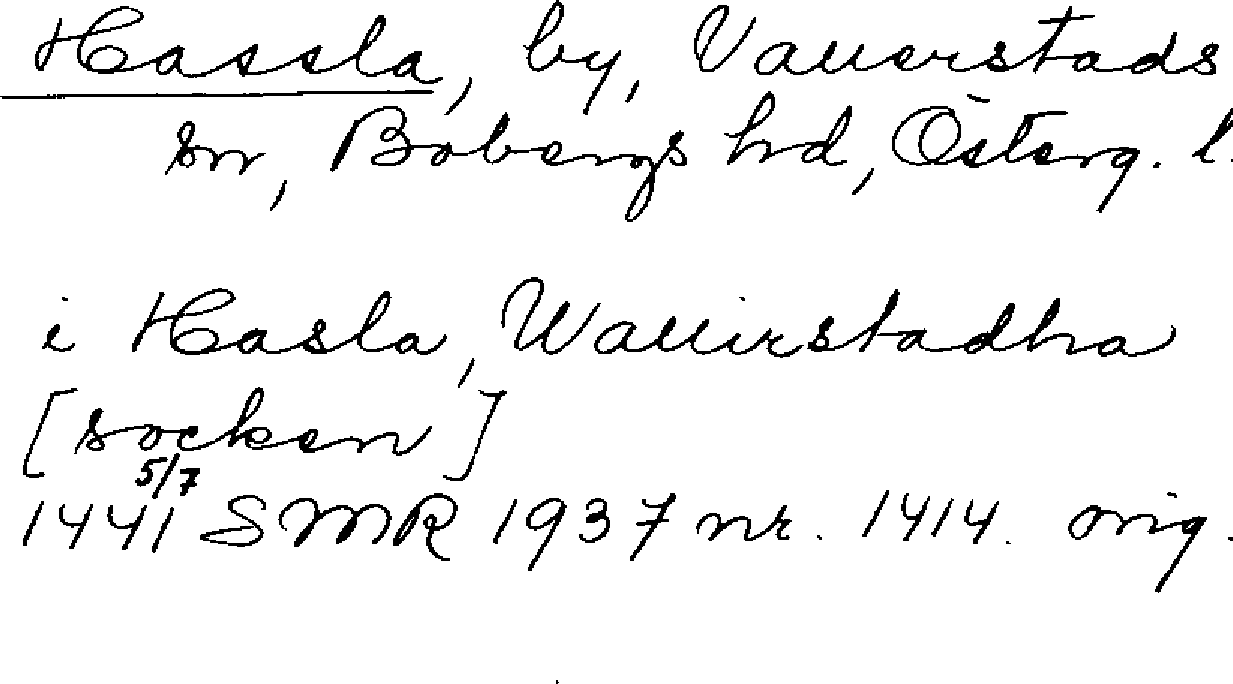 Hassla, by, Vallerstads
sn, Bobergs hd, Österg. l.
i Hasla, Wallirstadha
[socken]
5/7
1441 SMR 1937 nr. 1414. orig.